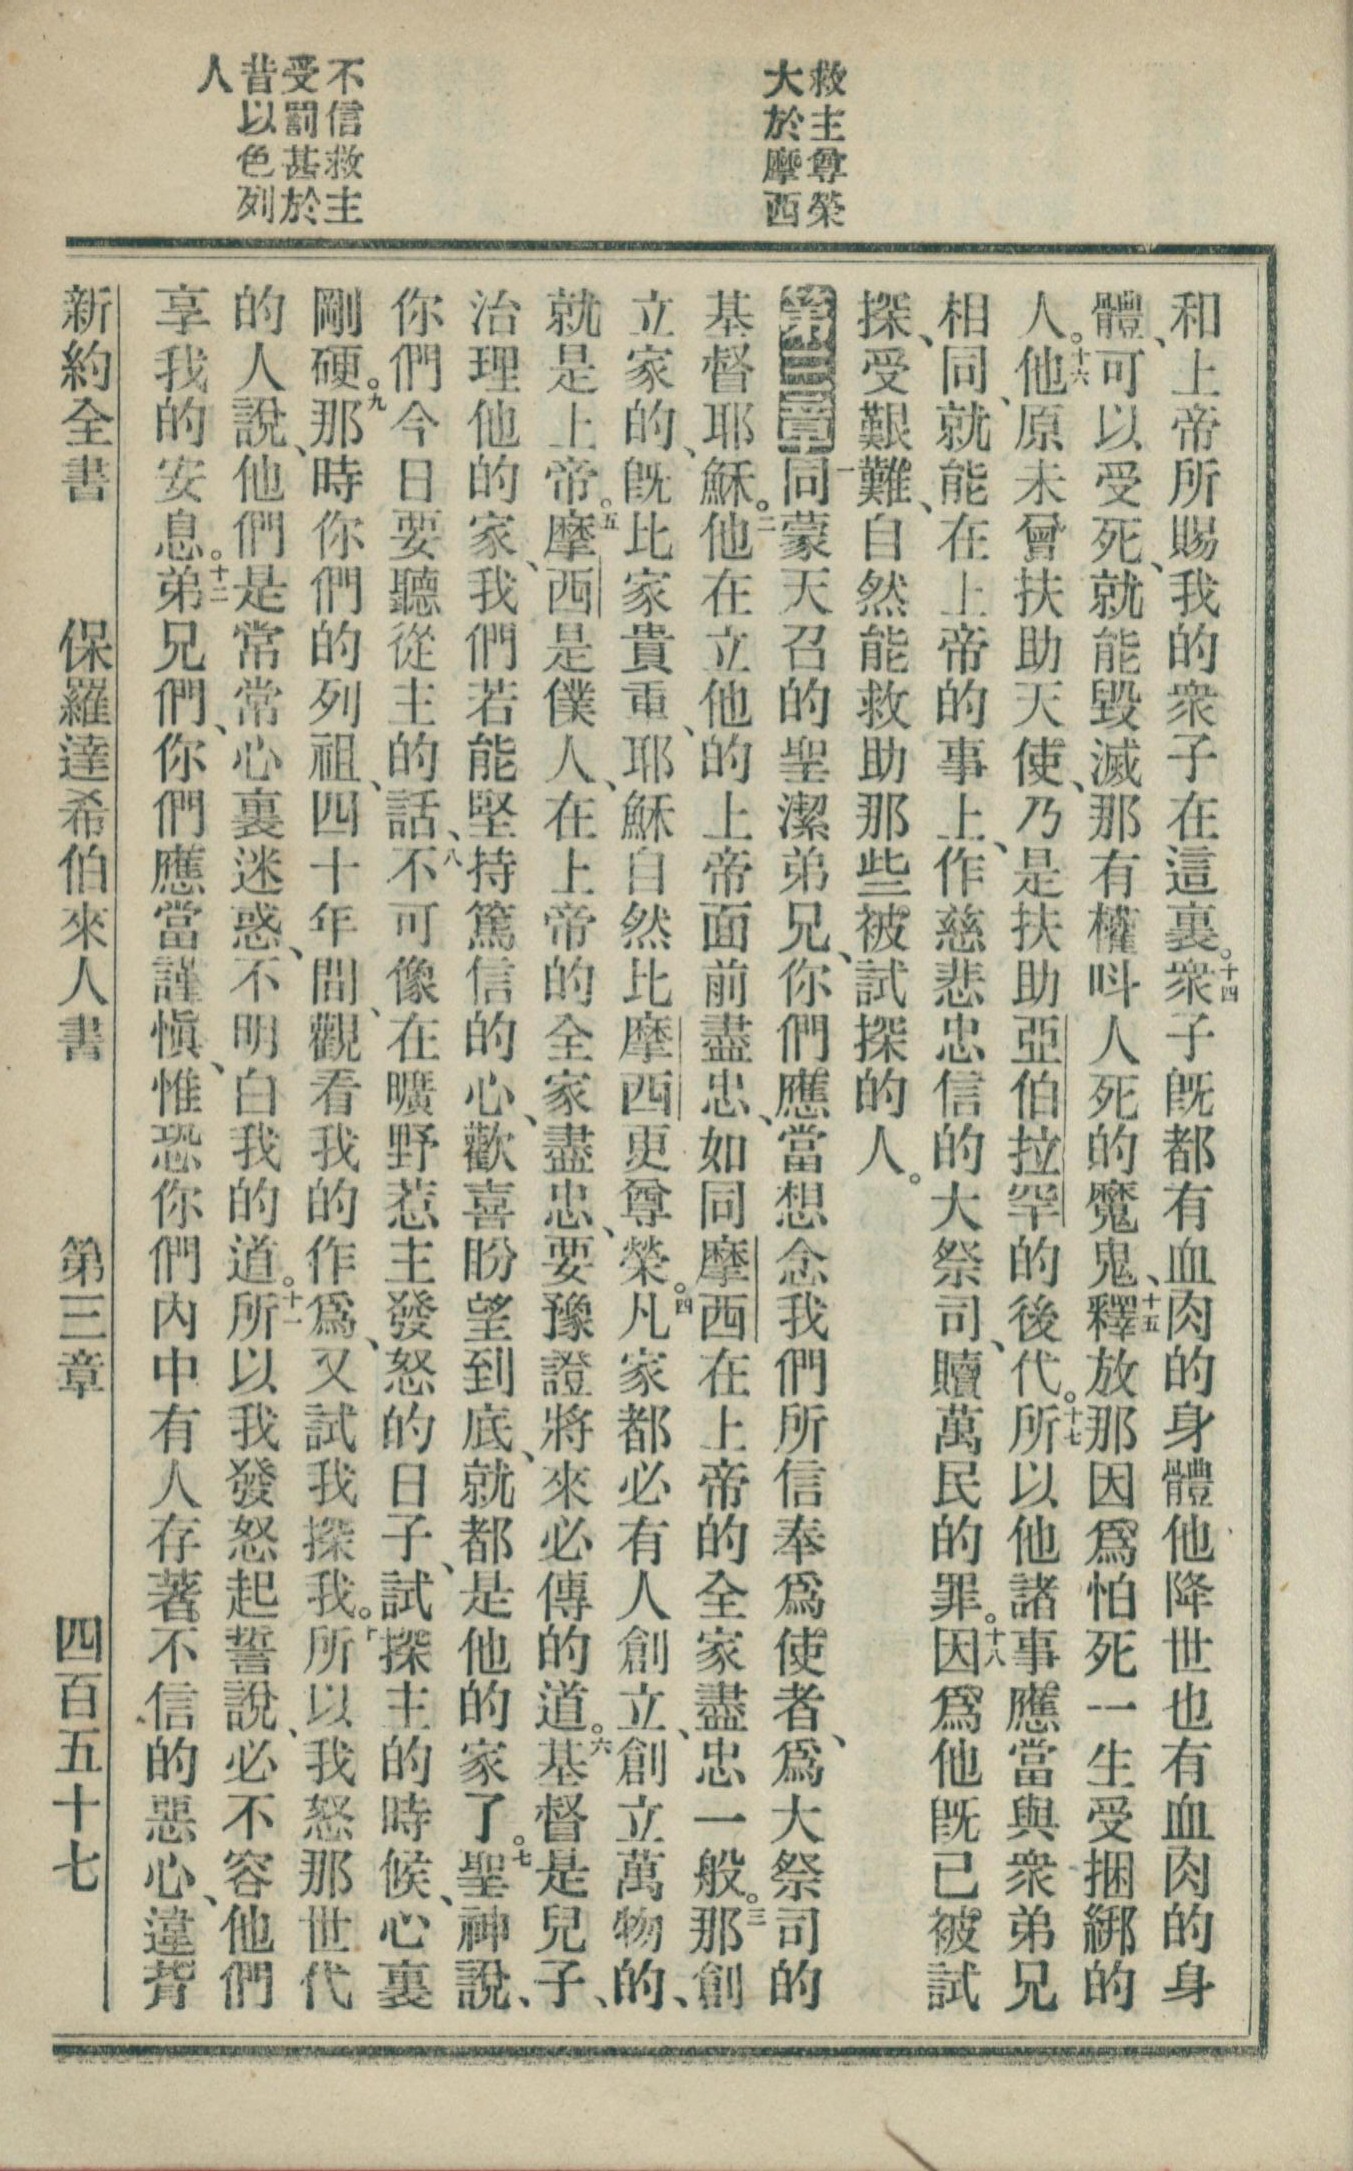 救主尊榮
大於摩西
不信救主
受罰甚於
昔以色列
人
和上帝所賜我的衆子在這裏。十四衆子旣都有血肉的身體他降世也有血肉的身
體、可以受死、就能毀滅那有權呌人死的魔鬼、十五釋放那因爲怕死一生受捆綁的
人。十六他原未曾扶助天使、乃是扶助亞伯拉罕的後代。十七所以他諸事應當與衆弟兄
相同、就能在上帝的事上、作慈悲忠信的大祭司、贖萬民的罪。十八因爲他旣已被試
探、受艱難、自然能救助那些被試探的人。
第三章一同蒙天召的聖潔弟兄、你們應當想念我們所信奉爲使者、爲大祭司的
基督耶穌。二他在立他的上帝面前盡忠、如同摩西在上帝的全家盡忠一般。三那創
立家的、旣比家貴重、耶穌自然比摩西更尊榮。四凡家都必有人創立、創立萬物的、
就是上帝。五摩西是僕人、在上帝的全家盡忠、要豫證將來必傳的道。六基督是兒子、
治理他的家、我們若能堅持篤信的心、歡喜盼望到底、就都是他的家了。七聖神說、
你們今日要聽從主的話、八不可像在曠野惹主發怒的日子、試探主的時候、心裏
剛硬。九那時你們的列祖、四十年間、觀看我的作爲、又試我探我。十所以我怒那世代
的人說、他們是常常心裏迷惑、不明白我的道。十一所以我發怒起誓說、必不容他們
享我的安息。十二弟兄們、你們應當謹愼、惟恐你們內中有人存著不信的惡心、違背
新約全書 保羅達希伯來人書 第三章 四百五十七